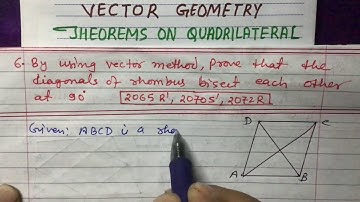 VECTOR GEOMETRY
THEOREMS ON QUADRILATERAL
6. By using vector method, prove that the
diagonals of rhombus bisect each other
at 90° 2065 R', 2070 S', 2072 R
Given: ABCD is a rho
D C
A B